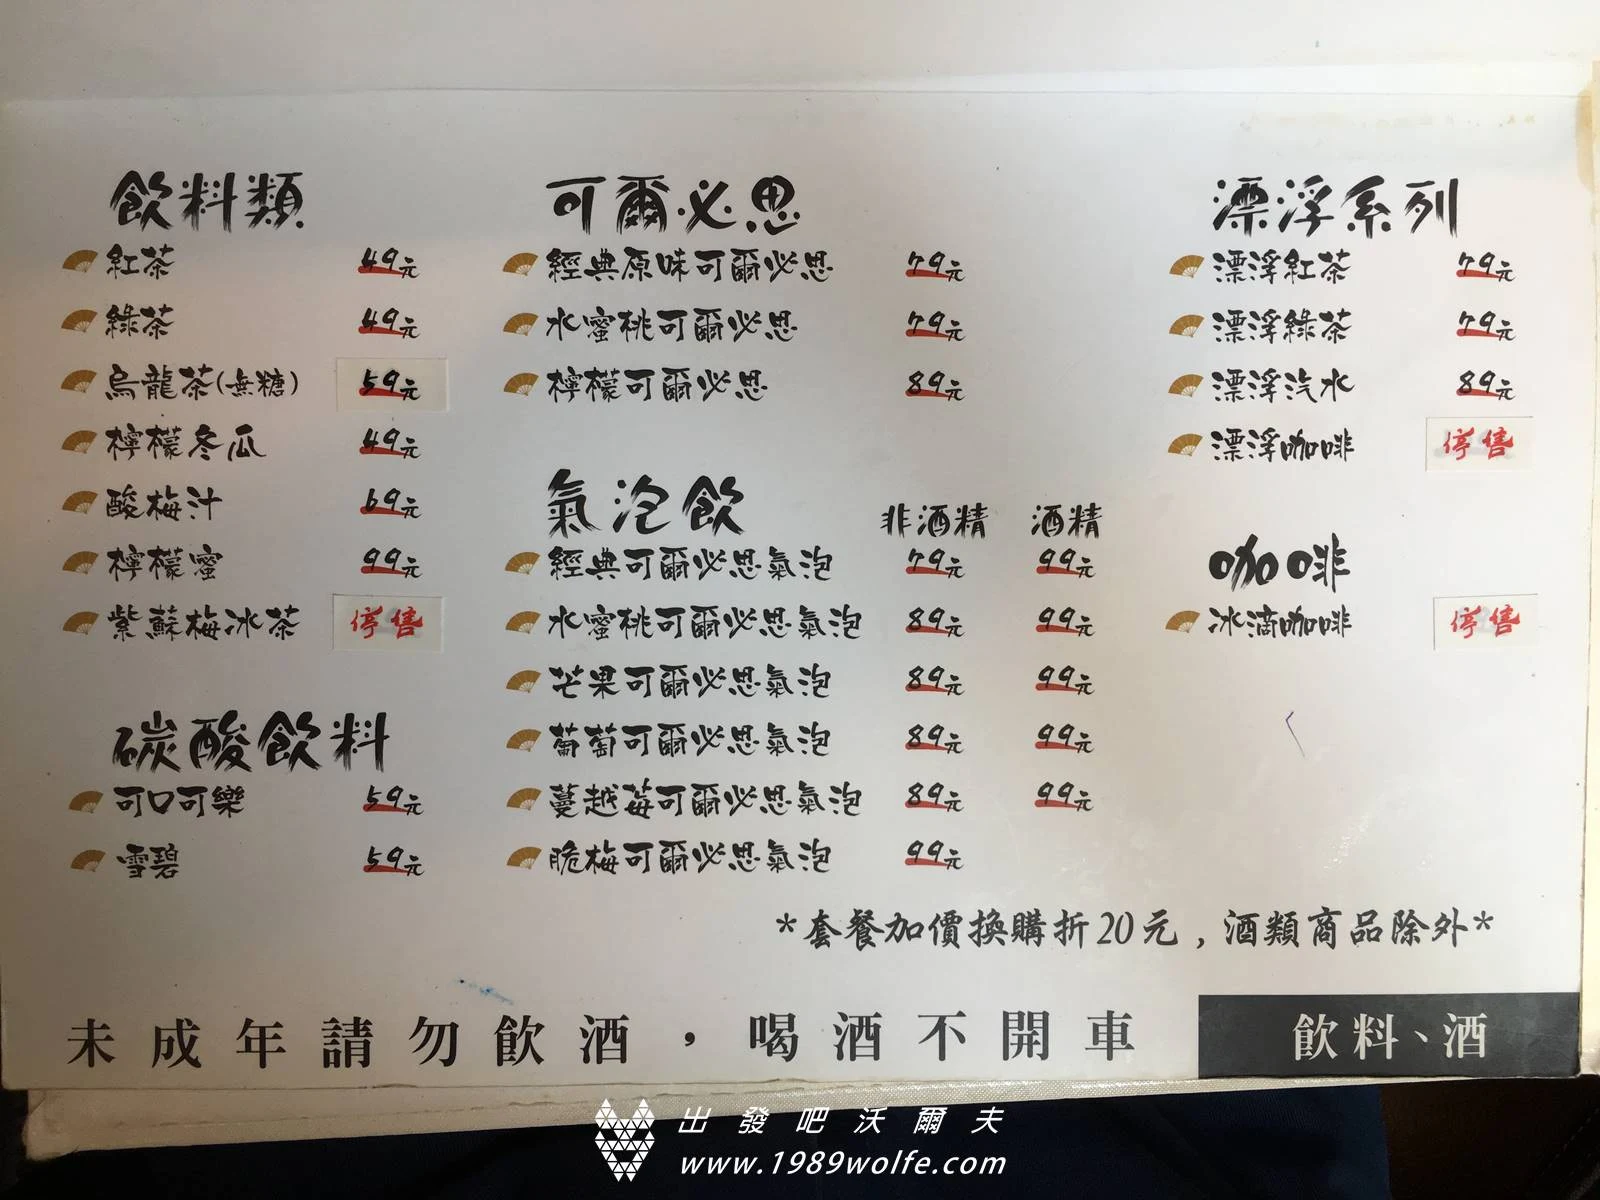 飲料類
紅茶 49元
綠茶 49元
烏龍茶(無糖) 59元
檸檬冬瓜 49元
酸梅汁 69元
檸檬蜜 99元
紫蘇梅冰茶 停售
碳酸飲料
可口可樂 59元
雪碧 59元
可爾必思
經典原味可爾必思 79元
水蜜桃可爾必思 79元
檸檬可爾必思 89元
氣泡飲 非酒精 酒精
經典可爾必思氣泡 79元 99元
水蜜桃可爾必思氣泡 89元 99元
芒果可爾必思氣泡 89元 99元
葡萄可爾必思氣泡 89元 99元
蔓越莓可爾必思氣泡 89元 99元
脆梅可爾必思氣泡 99元
漂浮系列
漂浮紅茶 79元
漂浮綠茶 79元
漂浮汽水 89元
漂浮咖啡 停售
咖啡
冰滴咖啡 停售
*套餐加價換購折20元，酒類商品除外*
未成年請勿飲酒，喝酒不開車
飲料、酒
出發吧沃爾夫
www.1989wolfe.com